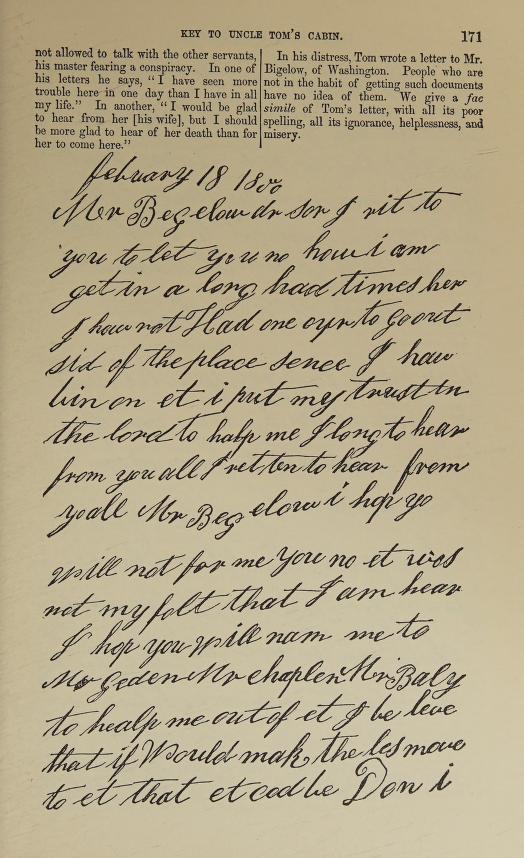 KEY TO UNCLE TOM'S CABIN. 171
not allowed to talk with the other servants,
his master fearing a conspiracy. In one of
his letters he says, "I have seen more
trouble here in one day than I have in all
my life." In another, "I would be glad
to hear from her [his wife], but I should
be more glad to hear of her death than for
her to come here."
In his distress, Tom wrote a letter to Mr.
Bigelow, of Washington. People who are
not in the habit of getting such documents
have no idea of them. We give a fac
simile of Tom's letter, with all its poor
spelling, all its ignorance, helplessness, and
misery.
february 18 18
Mr Begelow dr sor I rit to
you to let you no how i am
get in a long had times her
I haw not Had one our to go out
sid of the place senee I haw
bin on et i put my trust in
the lord to halp me I long to hear
from you all I ret ten to hear from
yo all Mr Begelow i hop yo
will not for me You no et was
not my folt that I am hear
I hop you will nam me to
Mr Geden Mr chaplen Mr Baly
to healp me out of et I be leve
that if Would mak the les move
to et that et cod be Don i